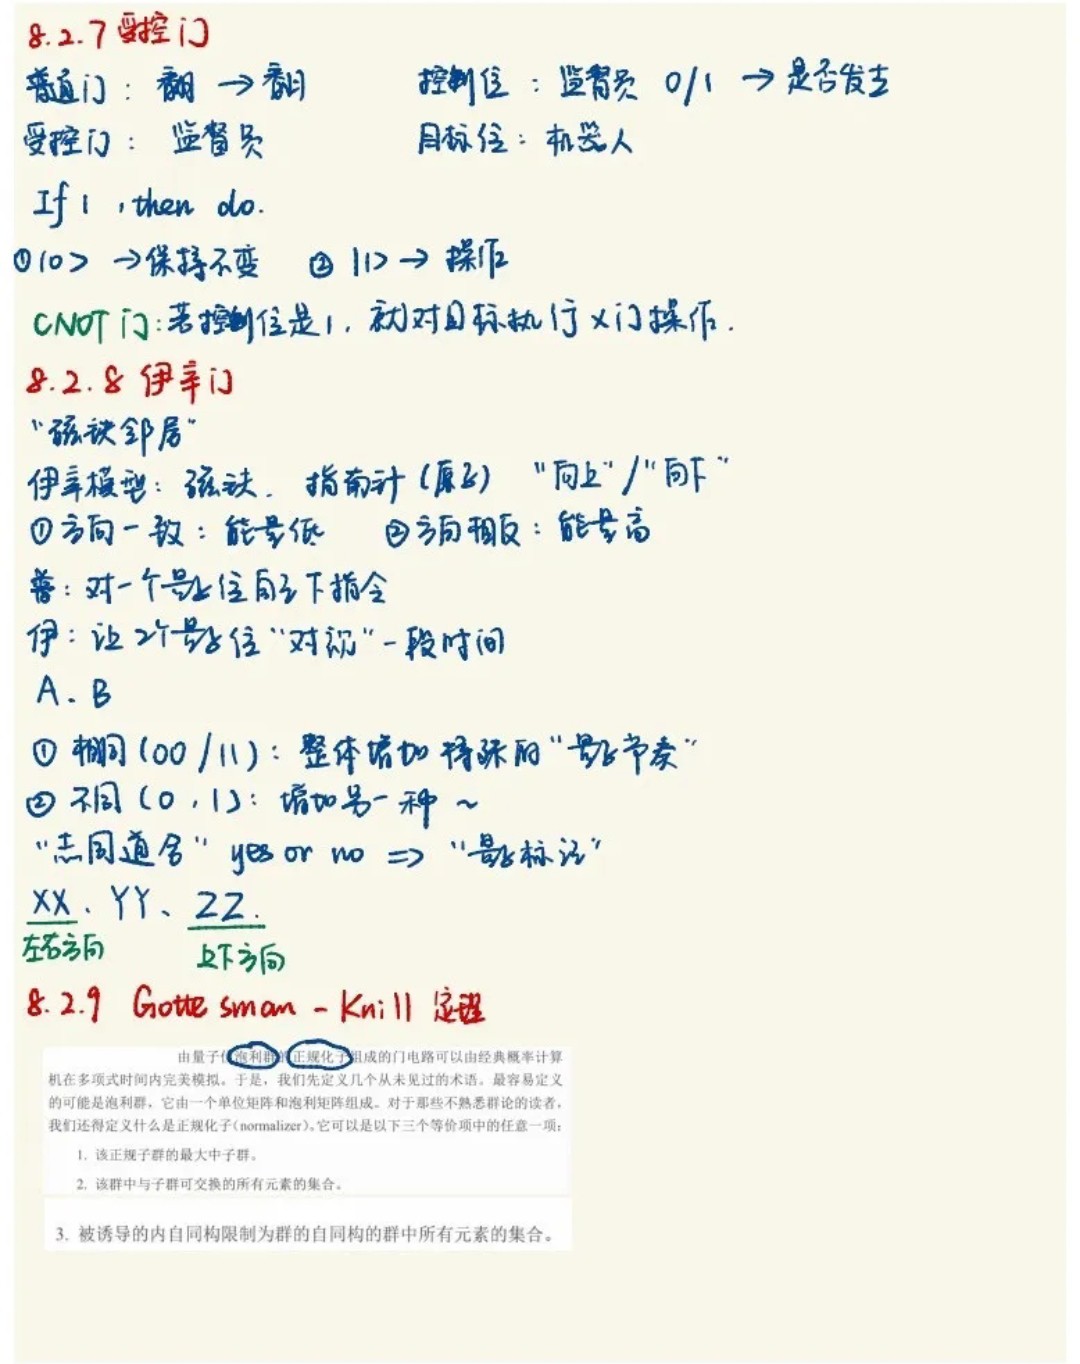 8.2.7 受控门
普通门：翻 → 翻 控制位：监督员 0/1 → 是否发生
受控门：监督员 目标位：机器人
If 1 , then do.
① |0> → 保持不变 ② |1> → 操作
CNOT 门：若控制位是1，就对目标执行 X门操作.
8.2.8 伊辛门
“磁铁邻居”
伊辛模型：磁铁. 指南针（原子） “向上”/“向下”
①方向一致：能量低 ②方向相反：能量高
普：对一个量子位自己下指令
伊：让2个量子位“对视”一段时间
A. B
① 相同 (00/11)：整体增加特殊的“量子节奏”
② 不同 (0,1)：增加另一种 ~
“志同道合” yes or no => “量子标注”
XX、YY、ZZ.
左右方向 上下方向
8.2.9 Gottesman - Knill 定理
由量子位泡利群的正规化子组成的门电路可以由经典概率计算
机在多项式时间内完美模拟。于是，我们先定义几个从未见过的术语。最容易定义
的可能是泡利群，它由一个单位矩阵和泡利矩阵组成。对于那些不熟悉群论的读者，
我们还得定义什么是正规化子(normalizer)。它可以是以下三个等价项中的任意一项：
1. 该正规子群的最大中子群。
2. 该群中与子群可交换的所有元素的集合。
3. 被诱导的内自同构限制为群的自同构的群中所有元素的集合。